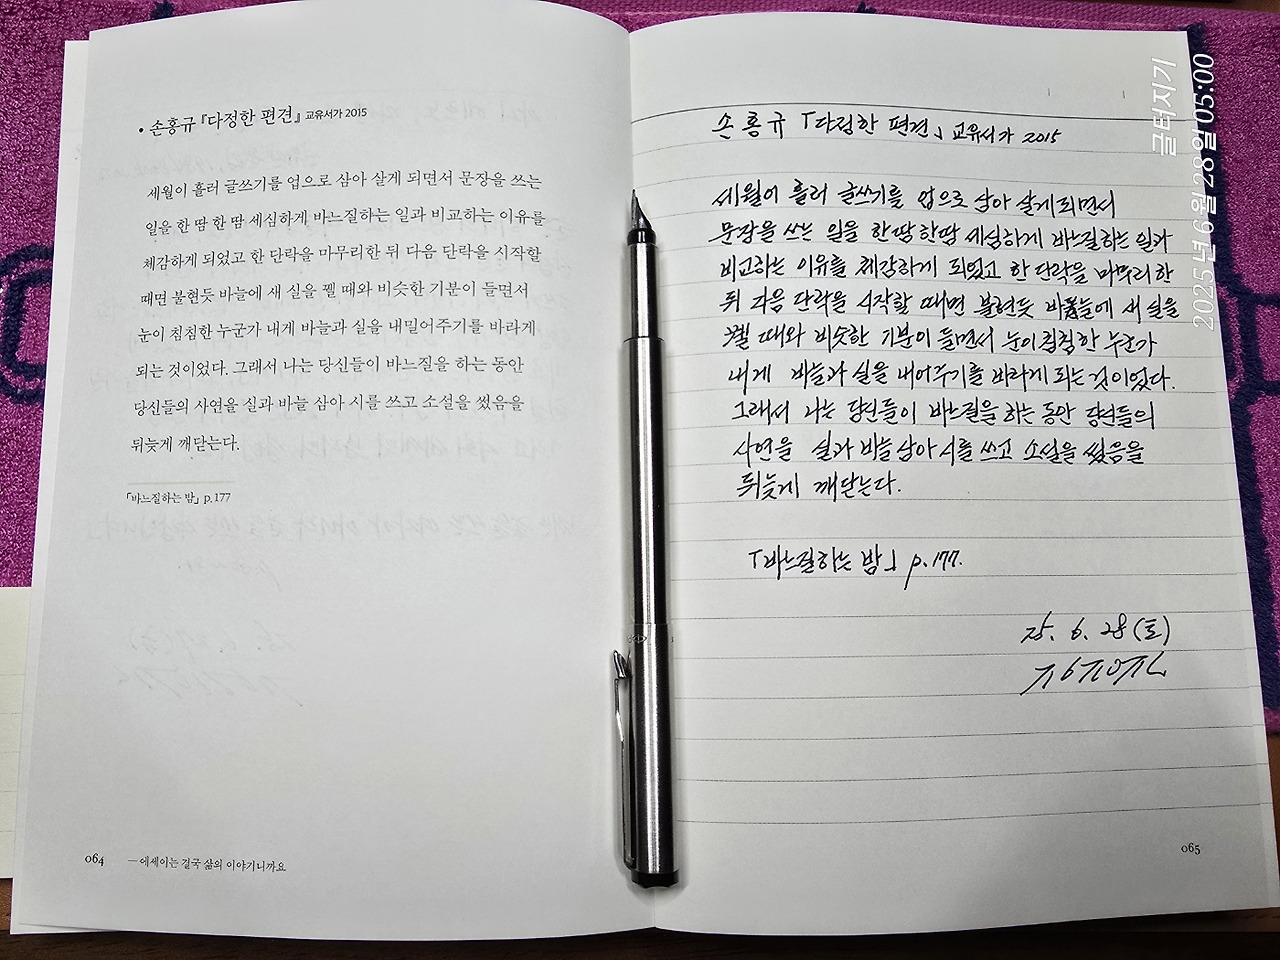 • 손홍규 『다정한 편견』 교유서가 2015
세월이 흘러 글쓰기를 업으로 삼아 살게 되면서 문장을 쓰는
일을 한 땀 한 땀 세심하게 바느질하는 일과 비교하는 이유를
체감하게 되었고 한 단락을 마무리한 뒤 다음 단락을 시작할
때면 불현듯 바늘에 새 실을 꿸 때와 비슷한 기분이 들면서
눈이 침침한 누군가 내게 바늘과 실을 내밀어주기를 바라게
되는 것이었다. 그래서 나는 당신들이 바느질을 하는 동안
당신들의 사연을 실과 바늘 삼아 시를 쓰고 소설을 썼음을
뒤늦게 깨닫는다.
「바느질하는 밤」 p.177
064
— 에세이는 결국 삶의 이야기니까요
손홍규 「다정한 편견」 교유서가 2015
세월이 흘러 글쓰기를 업으로 삼아 살게 되면서
문장을 쓰는 일을 한땀 한땀 세심하게 바느질하는 일과
비교하는 이유를 체감하게 되었고 한 단락을 마무리 한
뒤 다음 단락을 시작할 때면 불현듯 바늘에 새 실을
꿸 때와 비슷한 기분이 들면서 눈이 침침한 누군가
내게 바늘과 실을 내어주기를 바라게 되는 것이었다.
그래서 나는 당신들이 바느질을 하는 동안 당신들의
사연을 실과 바늘 삼아 시를 쓰고 소설을 썼음을
뒤늦게 깨닫는다.
「바느질하는 밤」 p.177.
25. 6. 28 (토)
065
글터지기
2025년 6월 28일 05:00